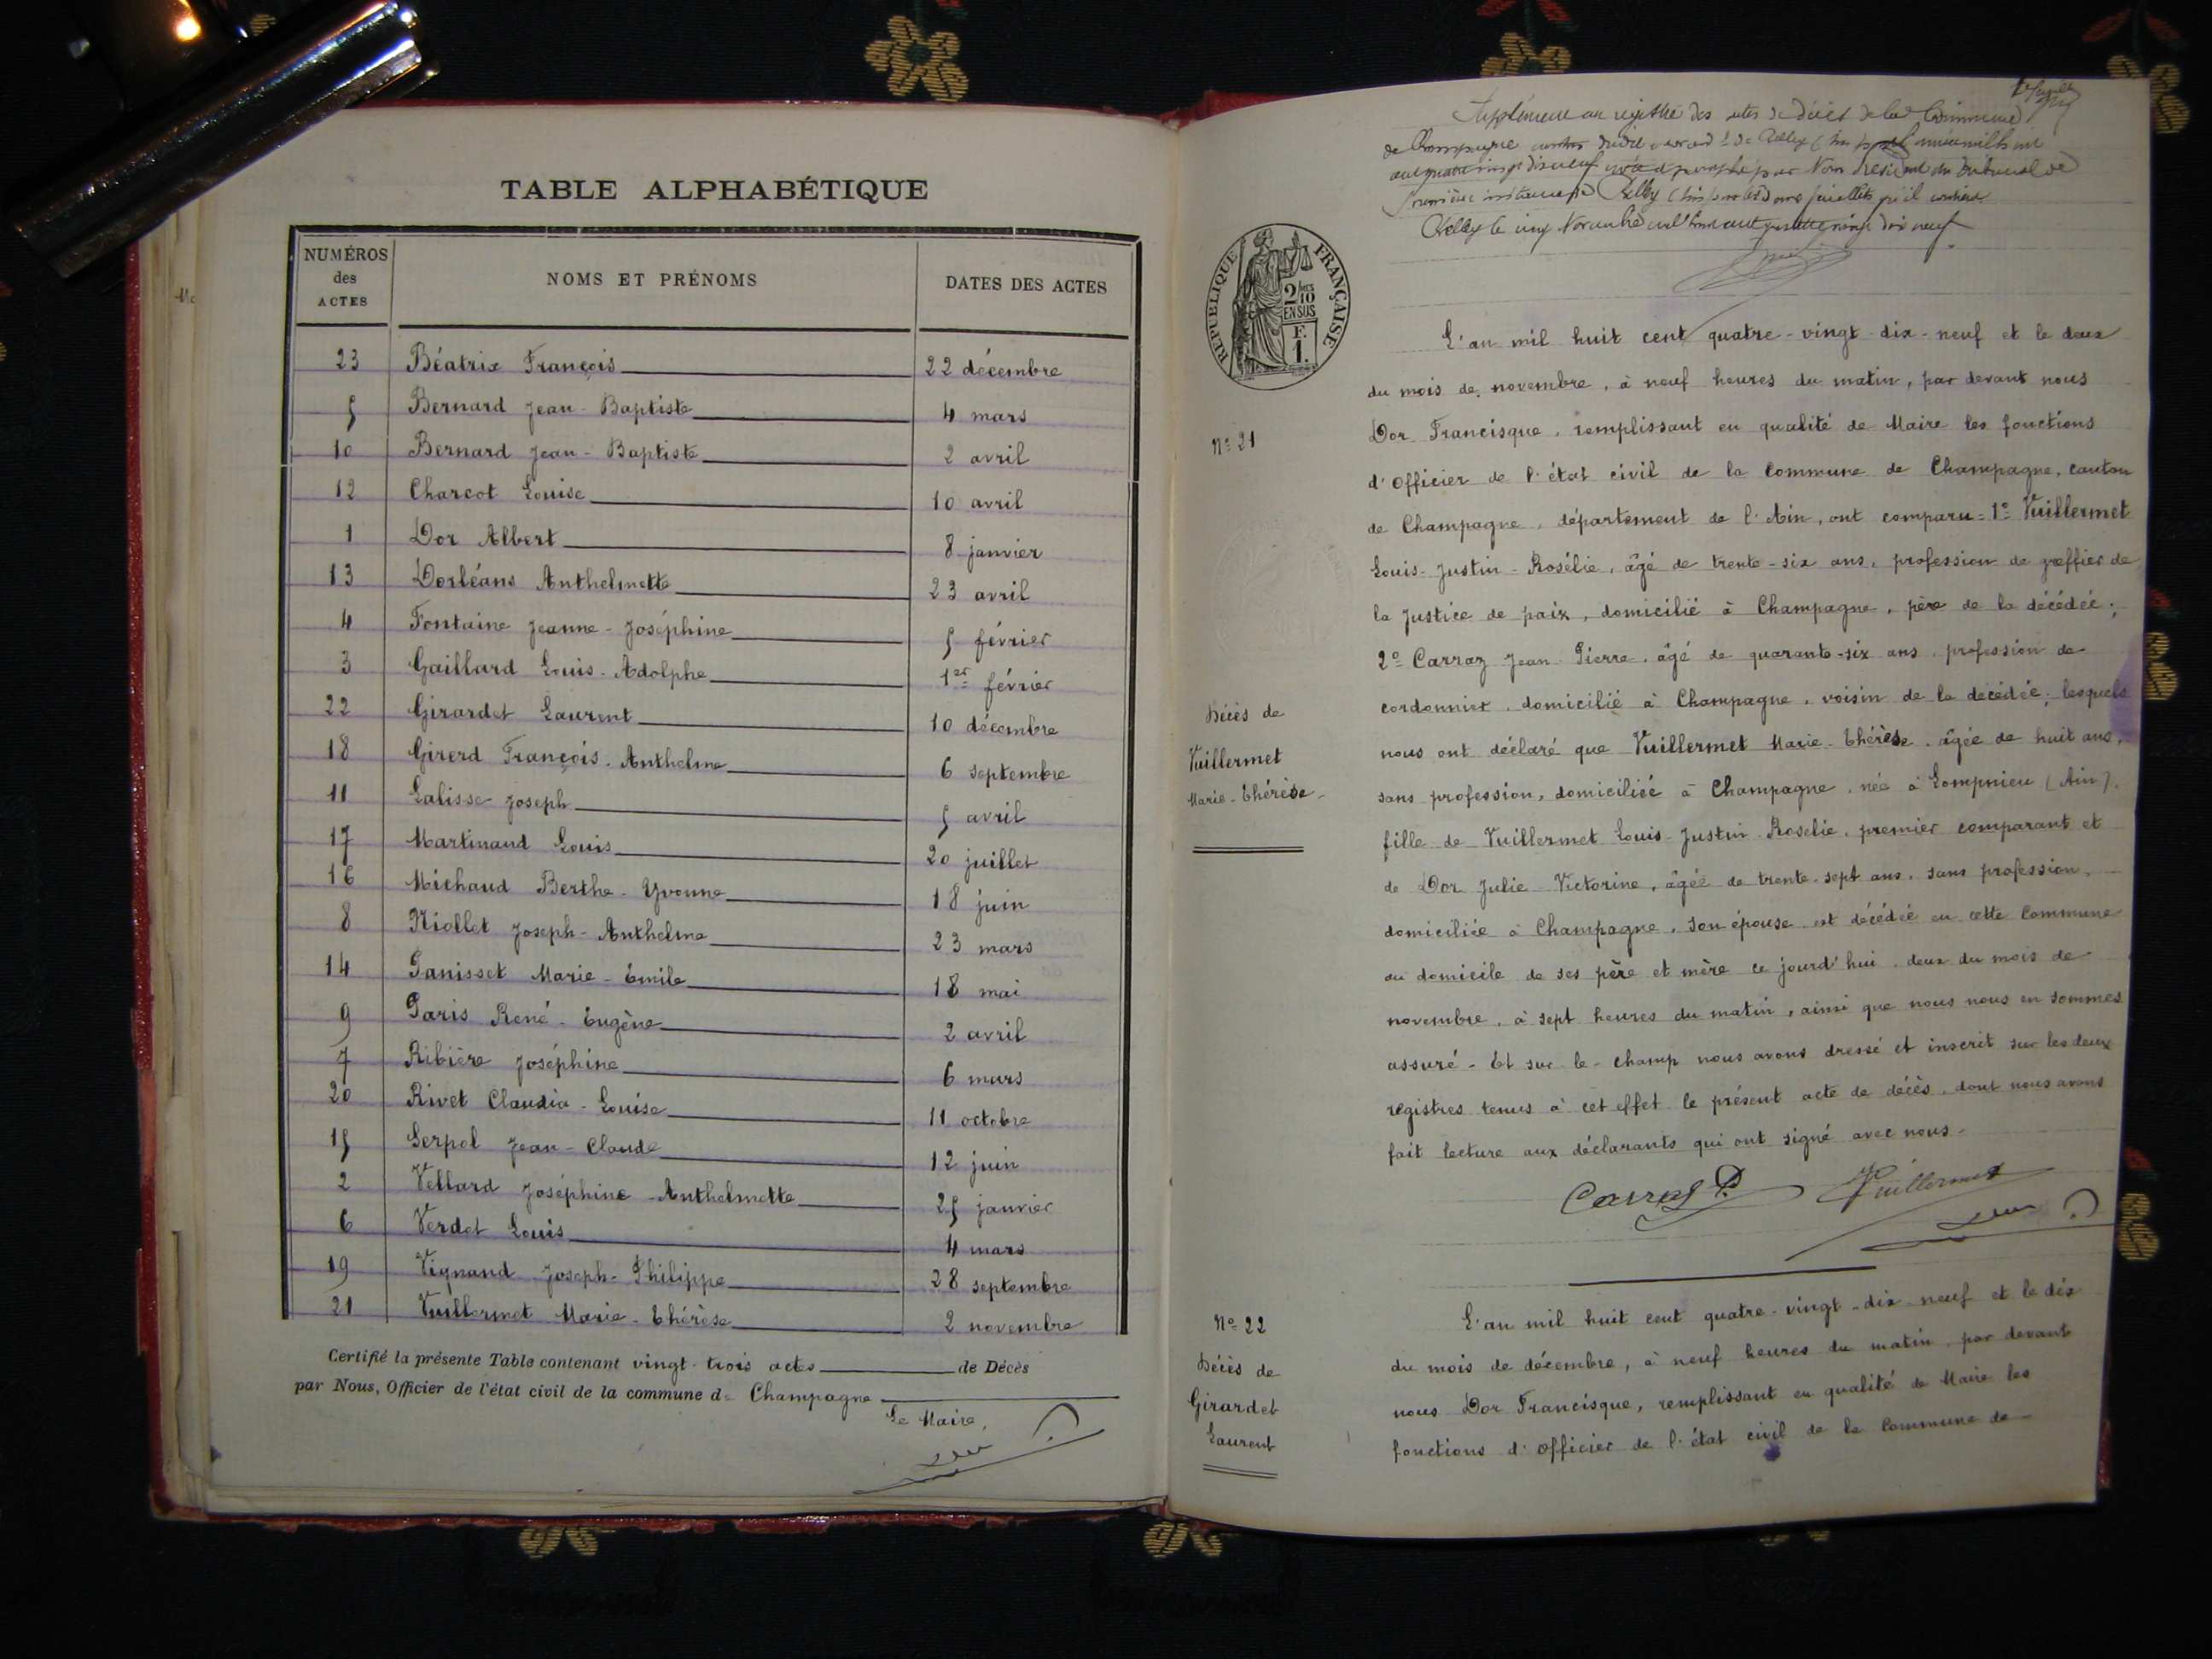 TABLE ALPHABÉTIQUE
NUMÉROS des ACTES NOMS ET PRÉNOMS DATES DES ACTES
23 Béatrix François 22 décembre
5 Bernard Jean-Baptiste 4 mars
10 Bernard Jean-Baptiste 2 avril
12 Charcot Louise 10 avril
1 Dor Albert 8 janvier
13 Dorléans Anthelmette 23 avril
4 Fontaine Jeanne-Joséphine 5 février
3 Gaillard Louis-Adolphe 1er février
22 Girardet Laurent 10 décembre
18 Girerd François-Anthelme 6 septembre
11 Lalisse Joseph 5 avril
17 Martinand Louis 20 juillet
16 Michaud Berthe-Yvonne 18 juin
8 Niollet Joseph-Anthelme 23 mars
14 Panisset Marie-Emile 18 mai
9 Paris René-Eugène 2 avril
7 Ribière Joséphine 6 mars
20 Rivet Claudia-Louise 11 octobre
15 Serpol Jean-Claude 12 juin
2 Vellard Joséphine-Anthelmette 25 janvier
6 Verdet Louis 4 mars
19 Vignand Joseph-Philippe 28 septembre
21 Vuillermet Marie-Thérèse 2 novembre
Certifié la présente Table contenant vingt-trois actes de Décès
par Nous, Officier de l'état civil de la commune de Champagne
Le Maire,
Supplément au registre des actes de décès de la Commune
de Champagne
par Nous Président du tribunal de
première instance de Belley feuillets qu'il contient
Belley le cinq Novembre mil huit cent quatre vingt dix neuf
RÉPUBLIQUE FRANÇAISE
2/10
EN SUS
F.
1.
L'an mil huit cent quatre-vingt-dix-neuf et le deux
du mois de novembre, à neuf heures du matin, par devant nous
N° 21
Dor Francisque, remplissant en qualité de Maire les fonctions
d'Officier de l'état civil de la Commune de Champagne, canton
de Champagne, département de l'Ain, ont comparu = 1° Vuillermet
Louis-Justin-Rosélie, âgé de trente-six ans, profession de greffier de
la Justice de paix, domicilié à Champagne, père de la décédée;
2° Carraz Jean-Pierre, âgé de quarante-six ans, profession de
cordonnier, domicilié à Champagne, voisin de la décédée; lesquels
Décès de
Vuillermet
Marie-Thérèse
nous ont déclaré que Vuillermet Marie-Thérèse, âgée de huit ans,
sans profession, domiciliée à Champagne, née à Lompnieu (Ain),
fille de Vuillermet Louis-Justin-Rosélie, premier comparant et
de Dor Julie-Victorine, âgée de trente-sept ans, sans profession,
domiciliée à Champagne, son épouse est décédée en cette Commune
au domicile de ses père et mère ce jourd'hui, deux du mois de
novembre, à sept heures du matin, ainsi que nous nous en sommes
assuré - Et sur-le-champ nous avons dressé et inscrit sur les deux
registres tenus à cet effet le présent acte de décès, dont nous avons
fait lecture aux déclarants qui ont signé avec nous -
Carraz P. Vuillermet
N° 22
Décès de
Girardet
Laurent
L'an mil huit cent quatre-vingt-dix-neuf et le dix
du mois de décembre, à neuf heures du matin, par devant
nous Dor Francisque, remplissant en qualité de Maire les
fonctions d'Officier de l'état civil de la Commune de